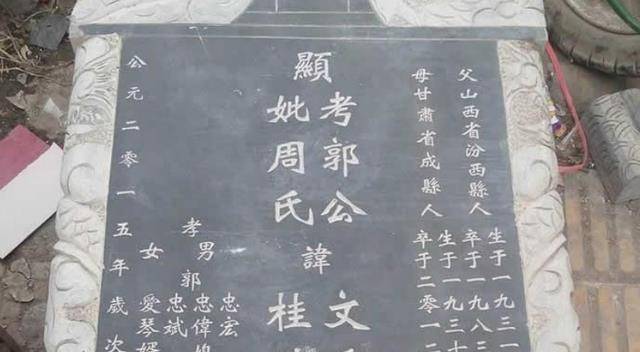 父山西省汾西縣人
生于一九三一
卒于一九八三
母甘肅省成縣人
生于一九三
卒于二零一二
顯
考郭公諱文
妣周氏桂
孝男郭
忠宏
忠偉
忠斌
女愛琴婿
公元二零一五年歲次